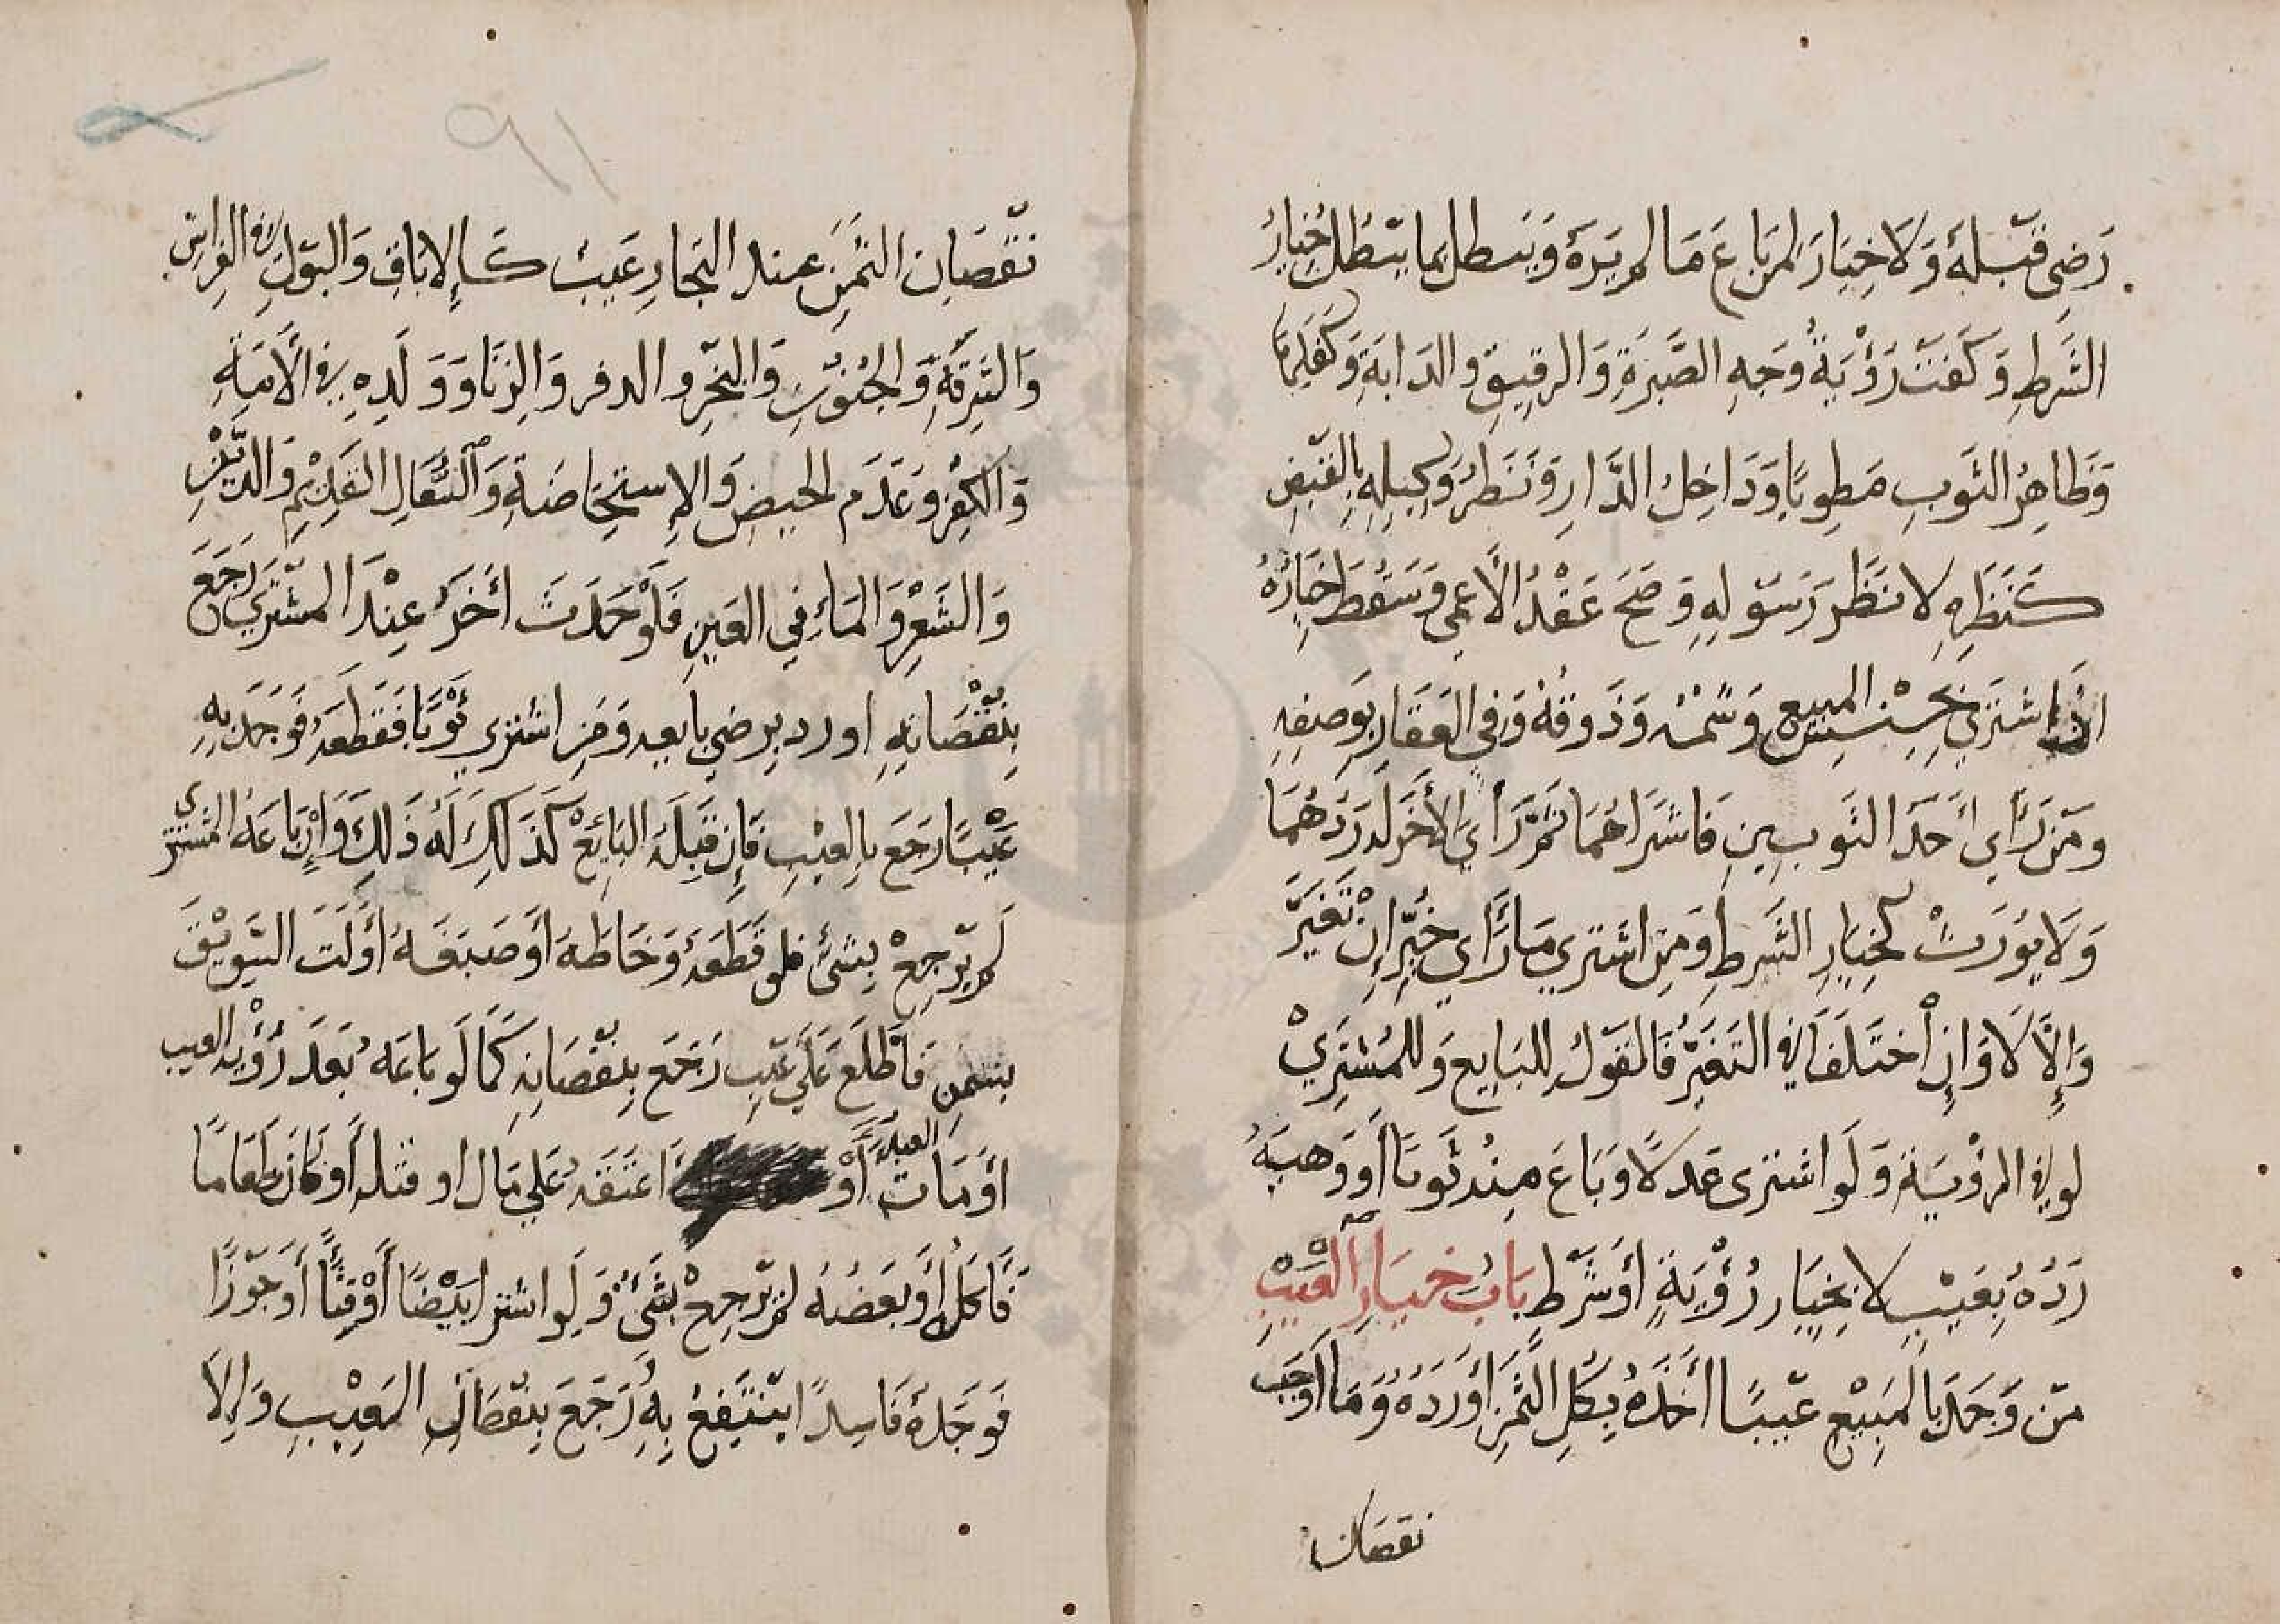 رَضِي قَبْلهُ وَلَا خِيَارَ لمن بَاعَ مَا لم يَرَهُ وَيَبطل بما يبْطل خيارُ
الشَرطِ وَكَفَتْ رُؤْيَةُ وَجهِ الصُّبرَةِ وَالرقيقِ والدَابةِ وَكَفَلِهَا
وَظَاهِرُ الثَوبِ مَطوِيًا وَدَاخِلُ الدَّارِ وَنَظَرُ وَكِيلِهِ بِالقَبْضِ
كَنَظَرِهِ لا نَظَر رَسُولِهِ وَصَحَ عَقْدُ الأَعمى وَسَقَطَ خِيَارُهُ
اذا اشترَي بجسّ المبيع وَشمّه وَذَوقه وَفي العَقَارِ بوَصفِهِ
ومَن رَأَي أَحَدَ الثَوبينِ فَاشتَرَاهُمَا ثُمَّ رَأَي الأَخَرَ لهُ رَدُّهُمَا
وَلَا يُورَثْ كخِيَارِ الشَرطِ وَمَنِ اشتَرِي مَا رَأَي خُيِّرَ إِنْ تَغَيَّرَ
وَإِلَّا لَا وَإِنِ أخْتَلَفَا في التَغَيُّرِ فَالقَولُ لِلبَايِعِ وَللمُشتَرِيْ
لو في الرؤيَةِ وَلَو اشترى عِدلًا وَبَاعَ مِنهُ ثَوبًا أَو وَهبَهُ
رَدُهُ بِعَيْبٍ لا بخِيَار رُؤْيَةٍ أَو شَرْط بَابُ خيَارِ العَيْبِ
مَنْ وَجَدَ بالمَبِيْعِ عَيبًا أَخَذَهُ بِكلِ الثَّمَنِ أَو رَدَهُ وَمَا أَوجَب
نقصان
٩١
نقْصَان الثمَنِ عند التجَارِ عَيبٌ كَالإبَاقِ وَالبَولِ في الفِراشِ
وَالسَرِقَةِ وَالجُنُونِ وَالبَخَرِ والدفر وَالزِنَا وَوَلَدِهِ في الأَمَةِ
وَالكُفْرِ وَعَدَم الحَيضِ وَالإستِحَاضَةِ وَالسُّعَالِ القَدِيْمِ وَالدَّيْنِ
وَالشَعْرِ وَالمَاءِ فِي العَينِ فَلَوْ حَدَثَ أَخَرُ عِنْدَ المشْتَرِي رَجَعَ
بِنُقْصَانِهِ اورد بِرضي بايعه وَمَنِ اشترِي ثَوْبًا فَقَطَعَهُ فَوَجَدَ بِهِ
عَيْبًا رَجَعَ بِالعَيْبِ فَإِن قَبِلَهُ البَايِعُ كَذَلِكَ لَهُ ذَلِكَ وَإِنْ بَاعَهُ المشتري
لَم يَرْجِعْ بِشَئٍ فلو قَطَعَهُ وَخَاطَهُ أَو صَبَغَهُ أَو لَتَّ السَوِيْقَ
بسَمنٍ فَأطَّلَعَ عَلَي عَيبٍ رَجَعَ بِنقْصَانِهِ كَمَا لَو بَاعَه بَعدَ رُؤْيةِ العيب
أو مَاتَ العبد أَوْ اعتَقَهُ عَلي مَال او قتله أَو كَانَ طَعَامًا
فَأَكَلَ أو بَعضُهُ لم يَرجِعْ بشَئٍ وَلَو اشترا بَيْضًا أَوْ قثَّاءً أَو جَوْزًا
فَوَجَدَهُ فَاسِدًا ينتَفِعُ بِهِ رَجَعَ بِنقصَانِ العَيْبِ وَإِلَا